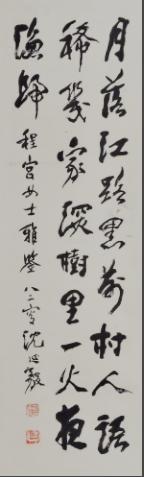 月落江路黑前村人語
稀幾家深樹里一火夜
漁歸 程宫女士雅鑒 八二叟沈延毅